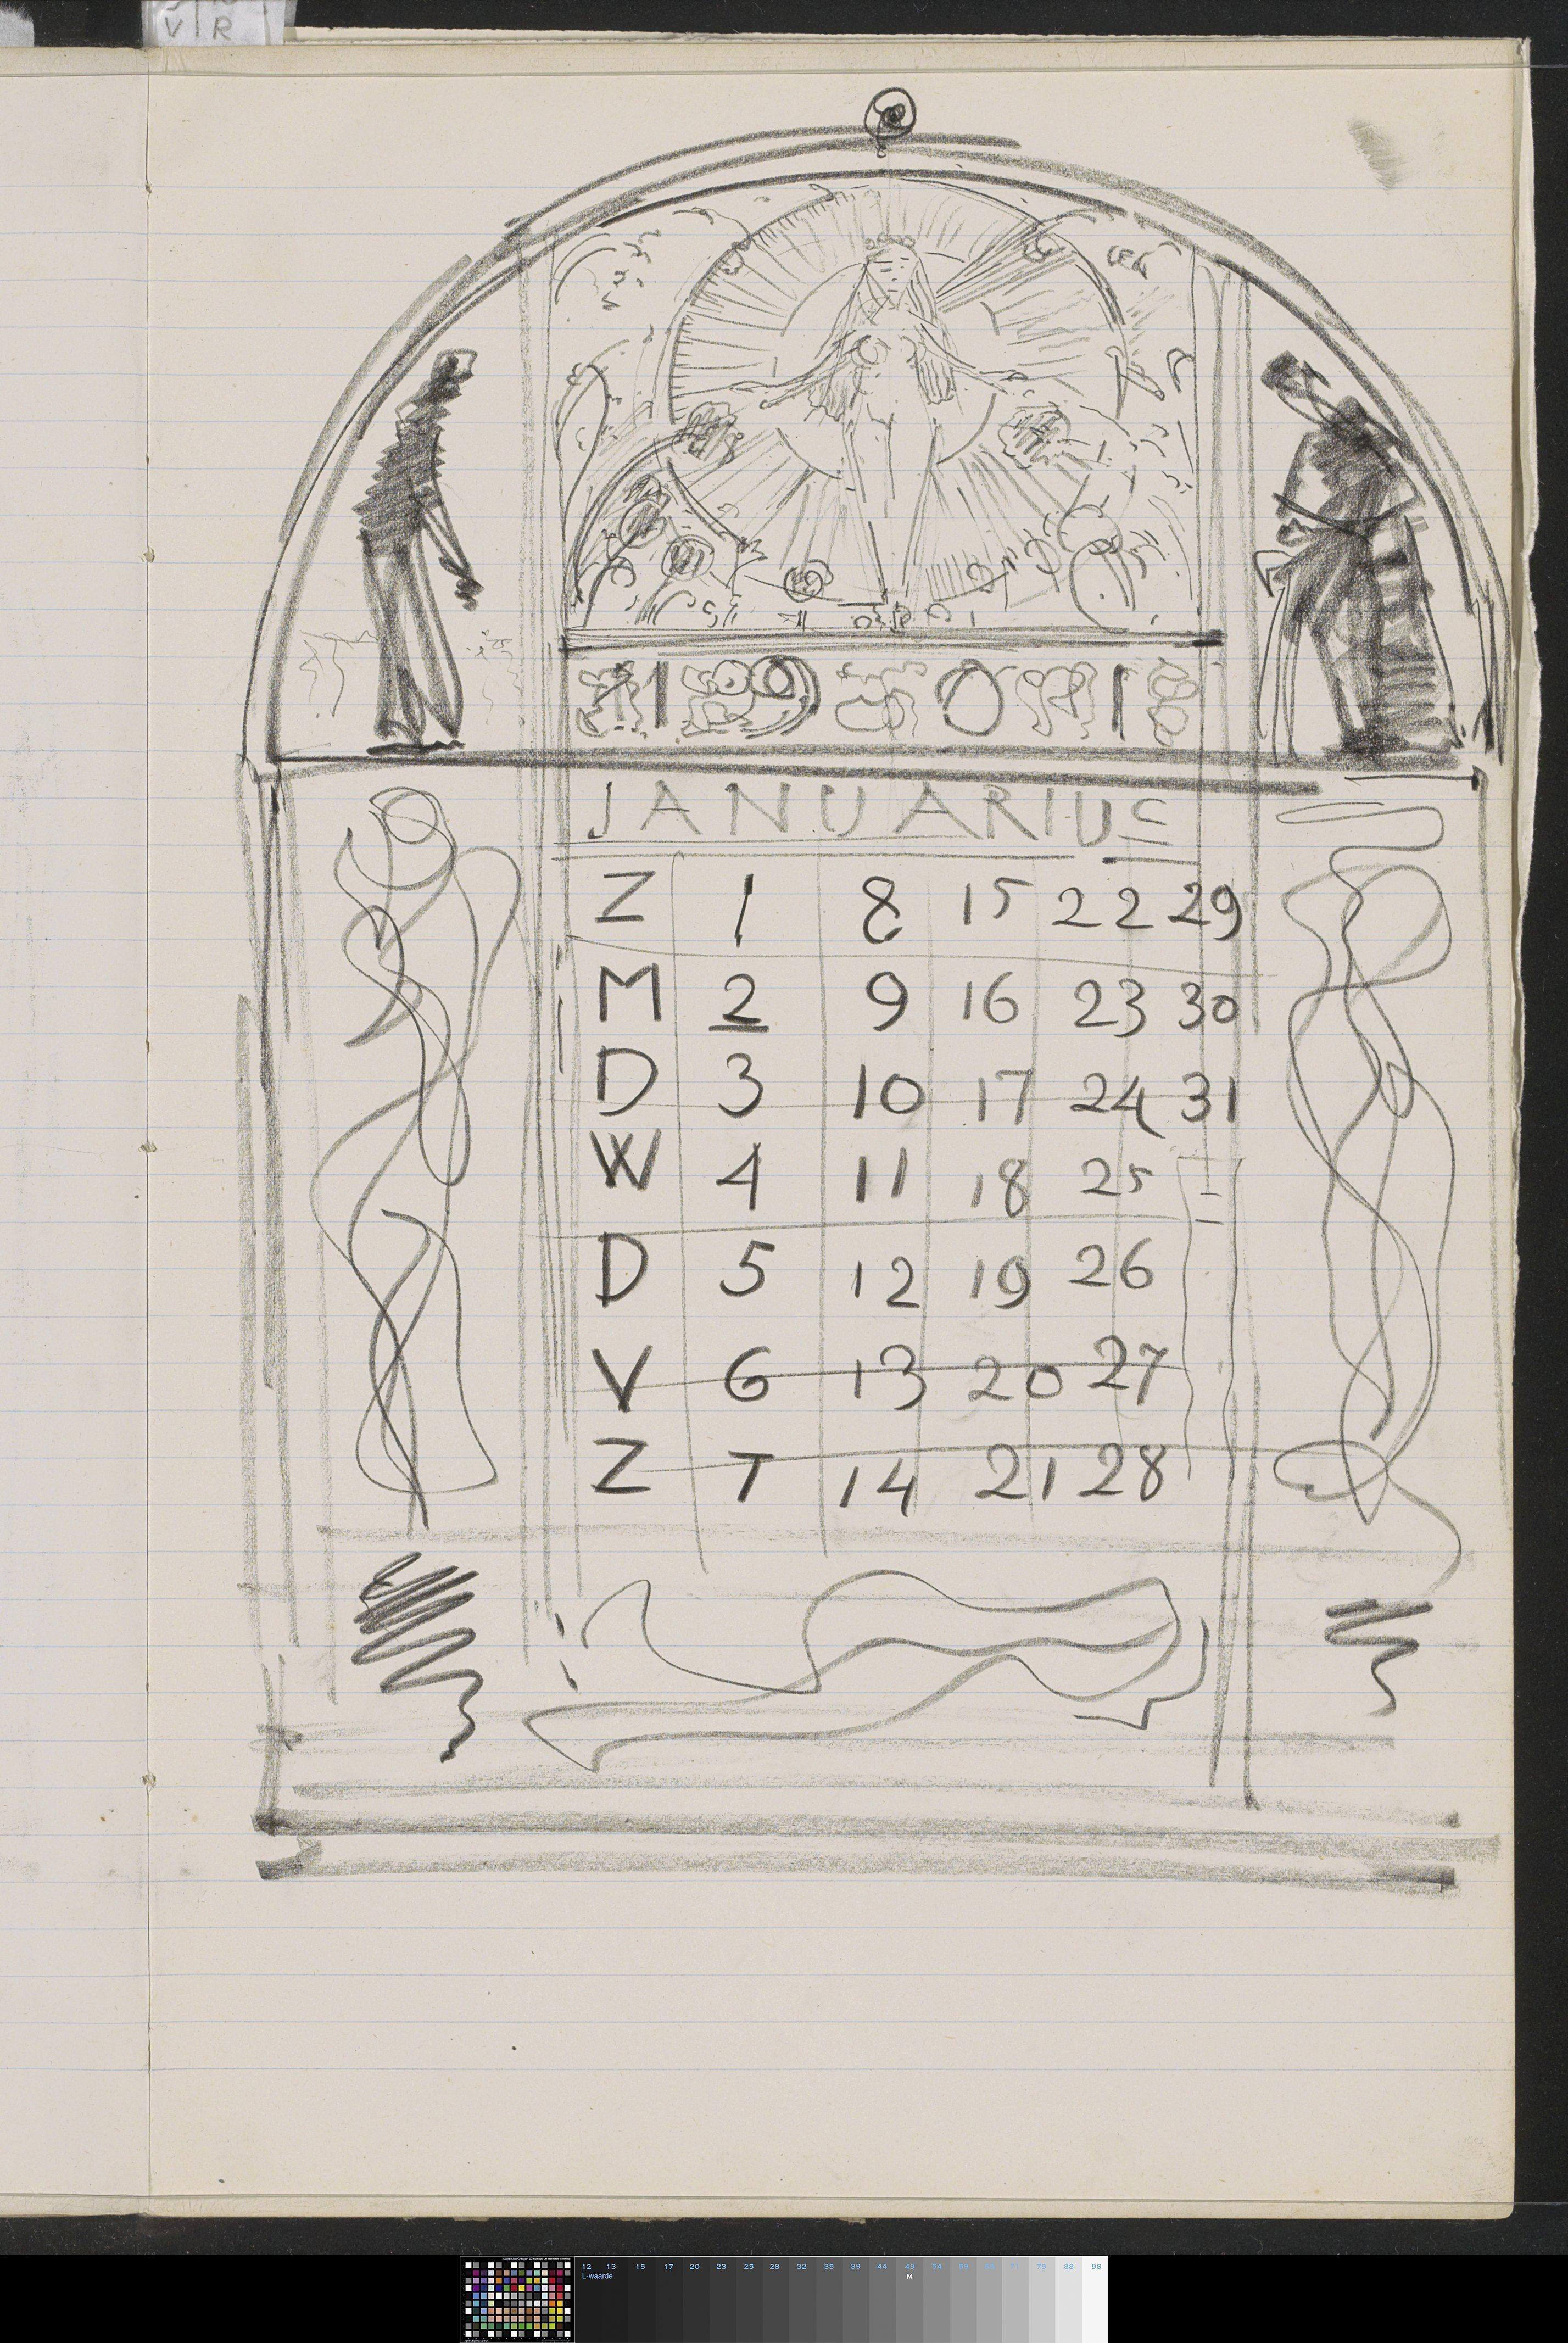 V R
1 9 0 1
JANUARIUS
Z 1 8 15 22 29
M 2 9 16 23 30
D 3 10 17 24 31
W 4 11 18 25
D 5 12 19 26
V 6 13 20 27
Z 7 14 21 28
12 13 15 17 20 23 25 28 32 35 39 44 49 54 59 79 88 96
L-waarde M